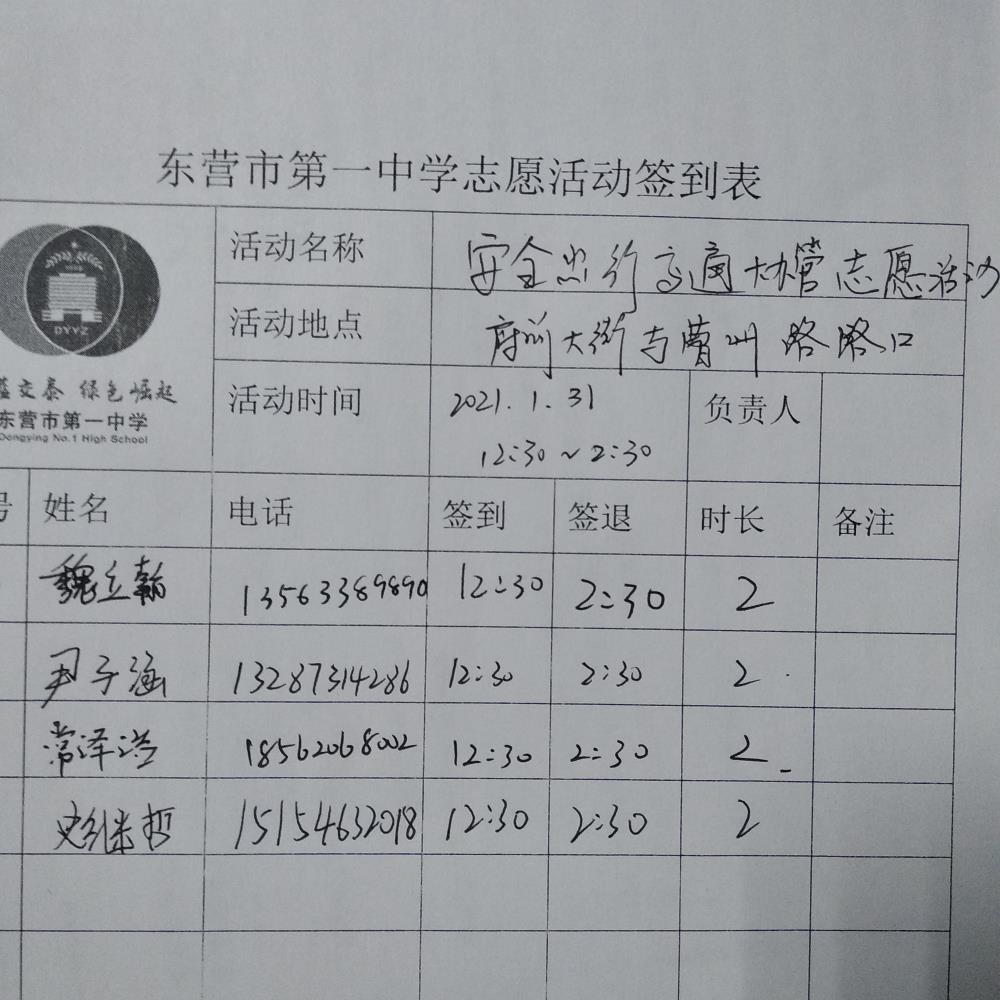 东营市第一中学志愿活动签到表
活动名称 安全出行交通协管志愿活动
活动地点 府前大街与曹州路路口
DYYZ
交泰 绿色崛起
东营市第一中学
Dongying No.1 High School
活动时间 2021.1.31 负责人
12:30~2:30
号 姓名 电话 签到 签退 时长 备注
魏立翰 13563389890 12:30 2:30 2
尹子涵 13287314286 12:30 2:30 2
常泽洪 18562068002 12:30 2:30 2
史继哲 15154632018 12:30 2:30 2